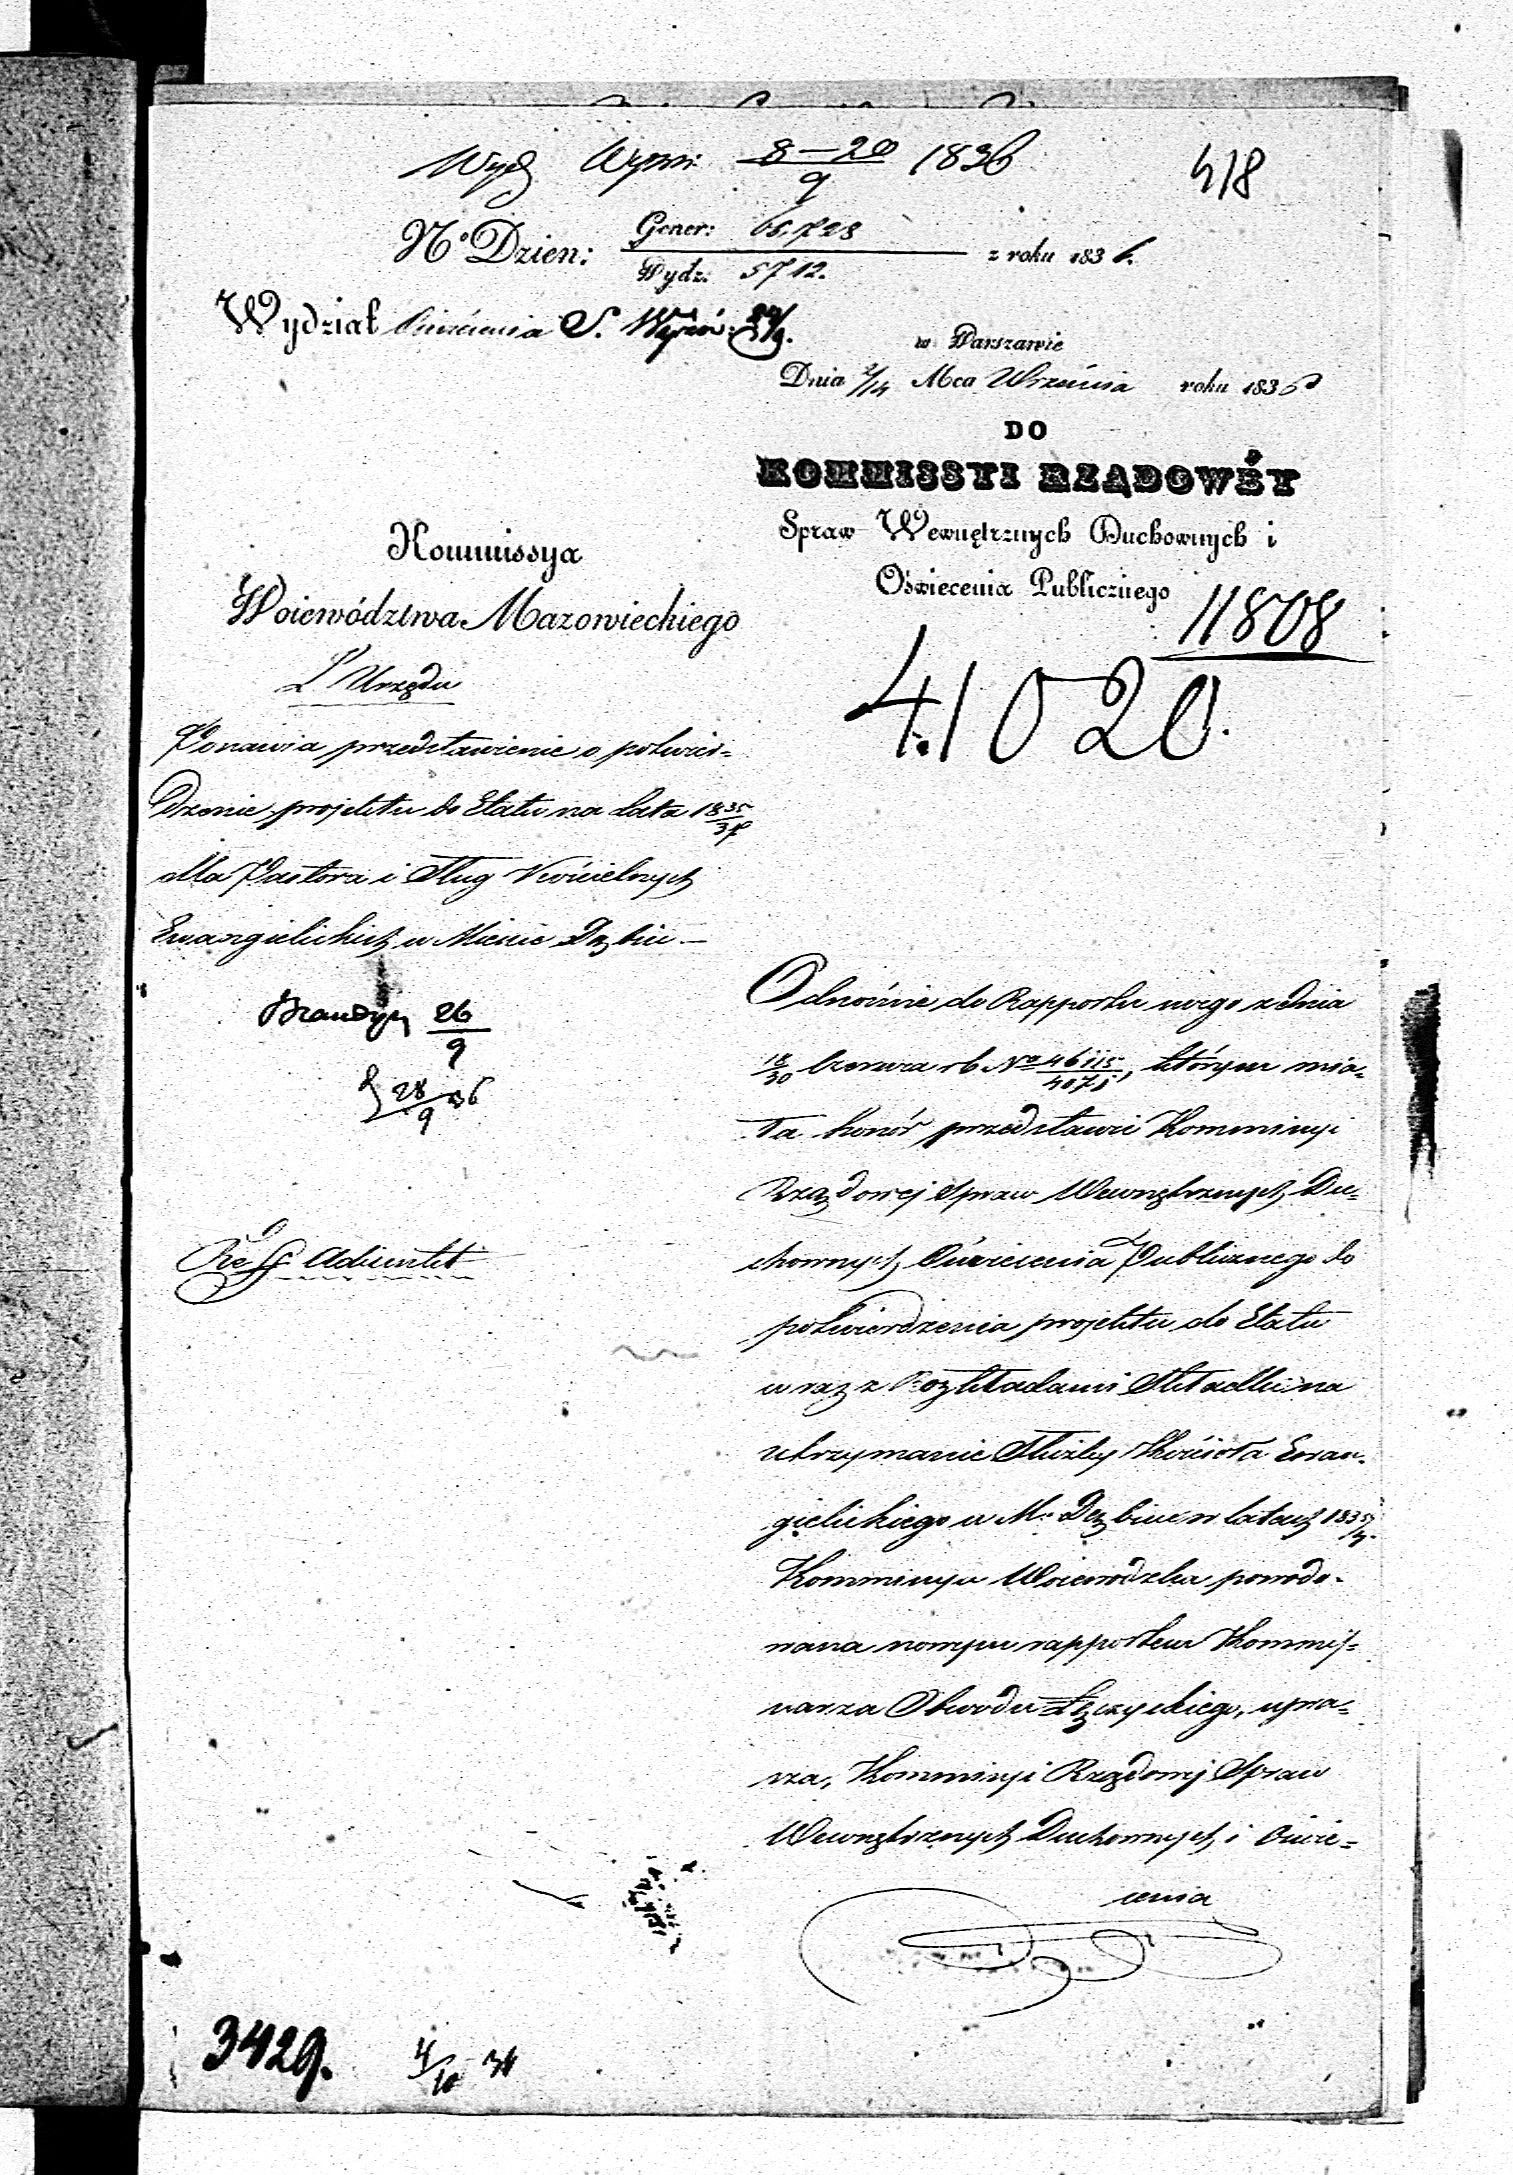 Wydz Wyzn: 8–20/9 1836
418
No Dzien: Gener: 66,728 / Wydz: 5712. z roku 1836.
Wydział Oświecenia S. Wyzn:
w Warszawie
Dnia 2/14 Mca Września roku 1836
DO
KOMMISSYI RZĄDOWÉY
Spraw Wewnętrznych Duchownych i
Oświecenia Publicznego
11808
41020.
Kommissya
Województwa Mazowieckiego
Z Urzędu
Ponawia przedstawienie o potwier=
dzenie projektu do Etatu na lata 1835/37
dla Pastora i Sług Kościelnych
Ewangielickich w Mieście Dąbiu —
26/9
28/9 36
Adiunkt
Odnośnie do Rapportu swego z dnia
18/30 Czerwca rb No 46115/4075, którym mia=
ła honór przedstawić Kommissyi
Rządowej Spraw Wewnętrznych Du=
chownych Oświecenia Publicznego do
potwierdzenia projektu do Etatu
wraz z Rozkładami Składki na
utrzymanie Służby Kościoła Ewan=
gielickiego w M. Dąbiu w latach 1835/7.
Kommissya Woiewódzka powodo=
wana nowym rapportem Kommis=
sarza Obwodu Łęczyckiego, upra=
sza, Kommissyi Rządowej Spraw
Wewnętrznych Duchownych i Oświe=
cenia
3429.
4/10 36